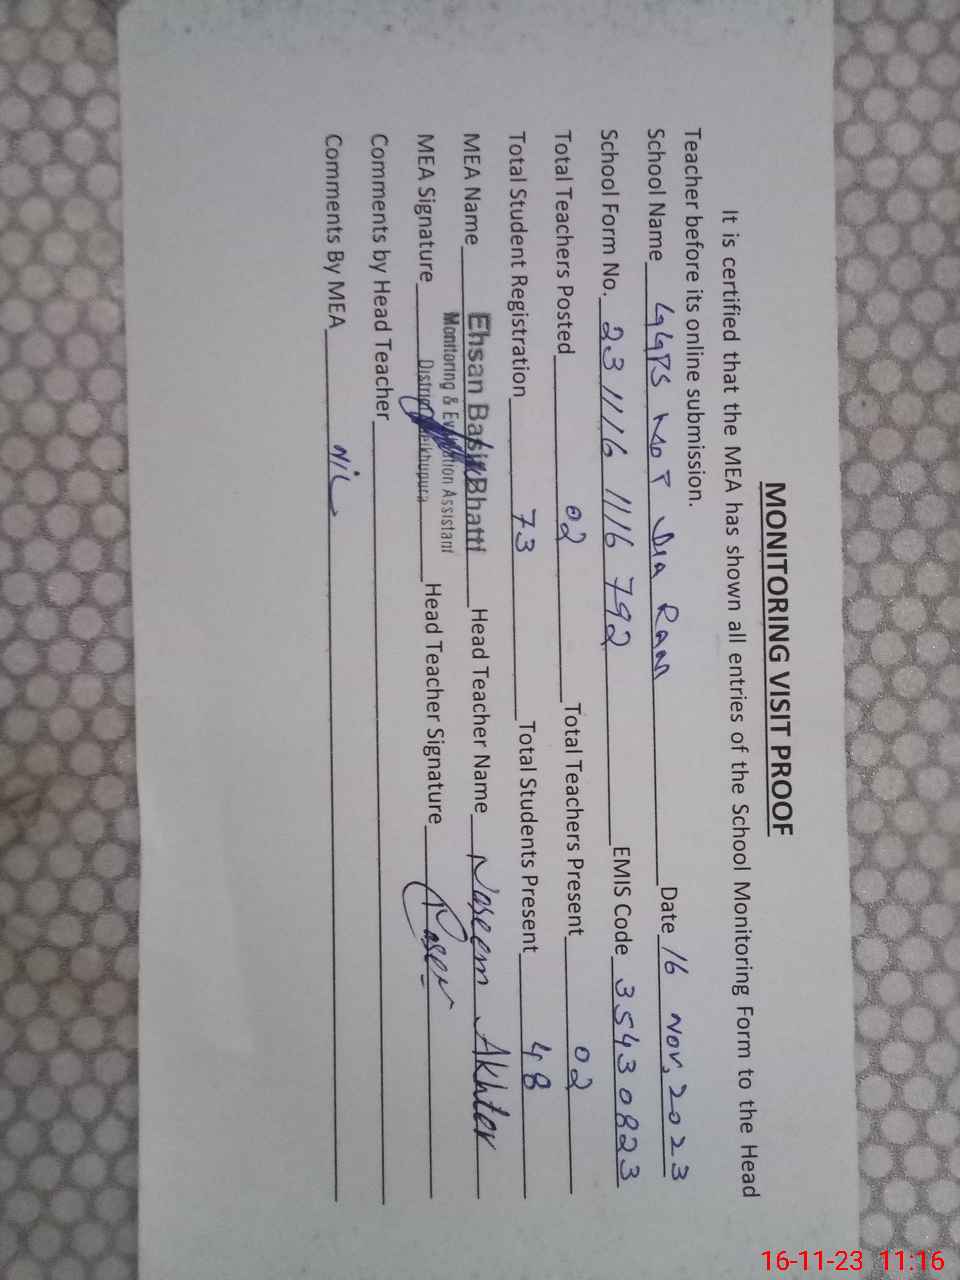 MONITORING VISIT PROOF
It is certified that the MEA has shown all entries of the School Monitoring Form to the Head
Teacher before its online submission.
School Name GGPS Mot Dia Ram Date 16 Nov, 2023
School Form No. 23 11 16 1116 792 EMIS Code 35430823
Total Teachers Posted 02 Total Teachers Present 02
Total Student Registration 73 Total Students Present 48
MEA Name Ehsan Basir Bhatti Head Teacher Name Naseem Akhter
Monitoring & Evaluation Assistant
MEA Signature District Sheikhupura Head Teacher Signature
Comments by Head Teacher
Comments By MEA Nil
16-11-23 11:16